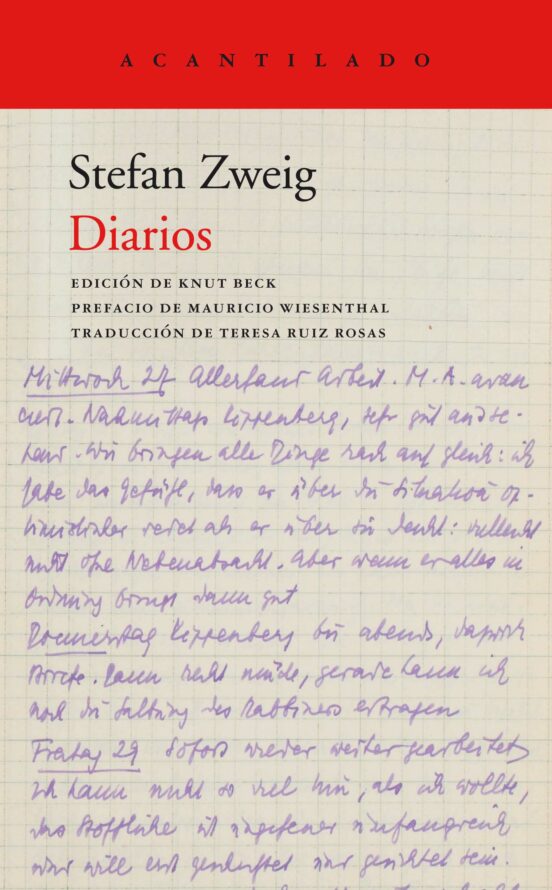 ACANTILADO
Stefan Zweig
Diarios
EDICIÓN DE KNUT BECK
PREFACIO DE MAURICIO WIESENTHAL
TRADUCCIÓN DE TERESA RUIZ ROSAS
Mittwoch 27 Allerhand Arbeit. M. A. avan
ciert. Nachmittags Kippenberg, sehr gut
Wir bringen alle Dinge rasch auf gleich: ich
habe das Gefühl, dass er über die Situation op-
timistischer redet als er über sie denkt: vielleicht
nicht ohne Nebenabsicht. Aber wenn er alles in
Ordnung bringt dann gut
Donnerstag Kippenberg bis abends,
Briefe. Dann recht müde, gerade kann ich
noch die des Rabbiners ertragen
Freitag 29 Sofort wieder weiter gearbeitet
ich kann nicht so viel hin, als ich wollte,
das Stoffliche ist ungeheuer umfangreich
und will erst und gesichtet sein.